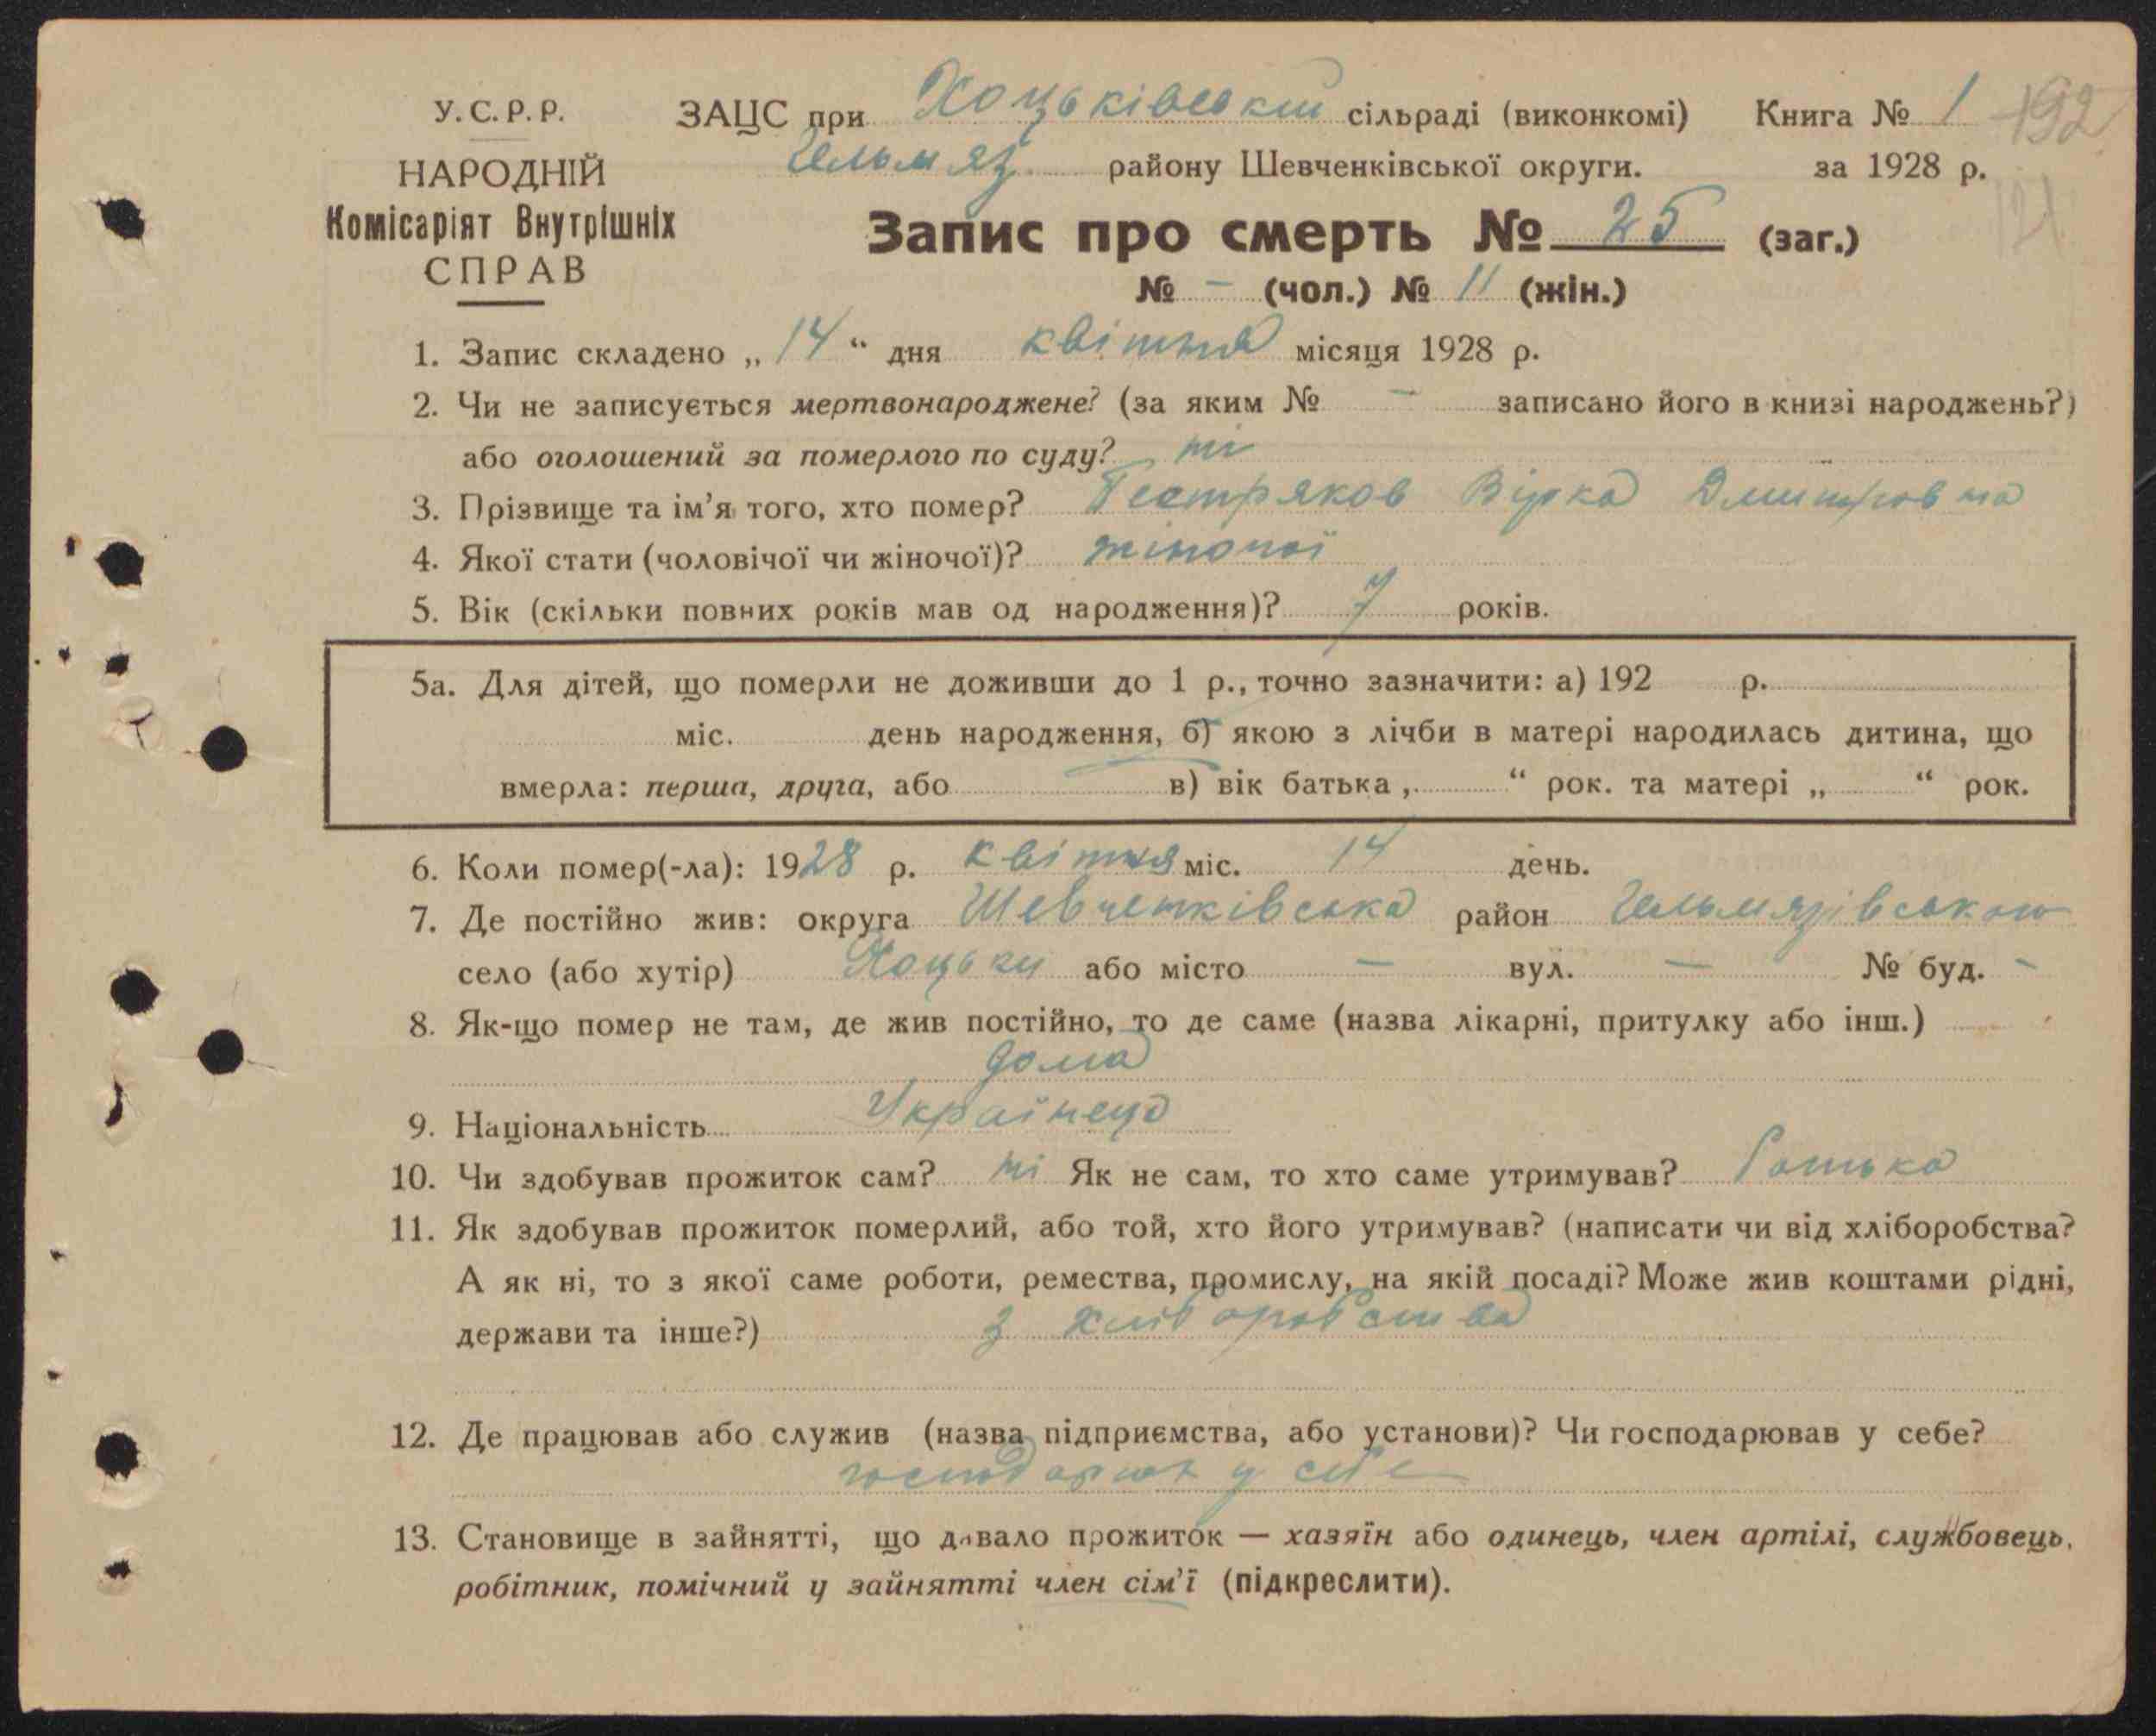 У.С.Р.Р. ЗАЦС при Хоцьківській сільраді (виконкомі) Книга № 1 192
НАРОДНІЙ Гельмяз. району Шевченківської округи. за 1928 р.
Комісаріят Внутрішніх
СПРАВ
Запис про смерть № 25 (заг.) 121
№ - (чол.) № 11 (жін.)
1. Запис складено „14“ дня квітня місяця 1928 р.
2. Чи не записується мертвонароджене? (за яким № - записано його в книзі народжень?)
або оголошений за померлого по суду? ні
3. Прізвище та ім'я того, хто помер? Пестряков Вірка Дмитровна
4. Якої стати (чоловічої чи жіночої)? жіночої
5. Вік (скільки повних років мав од народження)? 7 років.
5а. Для дітей, що померли не доживши до 1 р., точно зазначити: а) 192 р.
міс. день народження, б) якою з лічби в матері народилась дитина, що
вмерла: перша, друга, або в) вік батька „ “ рок. та матері „ “ рок.
6. Коли помер(-ла): 1928 р. квітня міс. 14 день.
7. Де постійно жив: округа Шевченківська район Гельмязівського
село (або хутір) Хоцьки або місто - вул. - № буд. -
8. Як-що помер не там, де жив постійно, то де саме (назва лікарні, притулку або інш.)
дома
9. Національність Українець
10. Чи здобував прожиток сам? ні Як не сам, то хто саме утримував? батька
11. Як здобував прожиток померлий, або той, хто його утримував? (написати чи від хліборобства?
А як ні, то з якої саме роботи, ремества, промислу, на якій посаді? Може жив коштами рідні,
держави та інше?) з хліборобства
12. Де працював або служив (назва підприємства, або установи)? Чи господарював у себе?
господарює у себе
13. Становище в зайнятті, що давало прожиток — хазяїн або одинець, член артілі, службовець,
робітник, помічний у зайнятті член сім'ї (підкреслити).